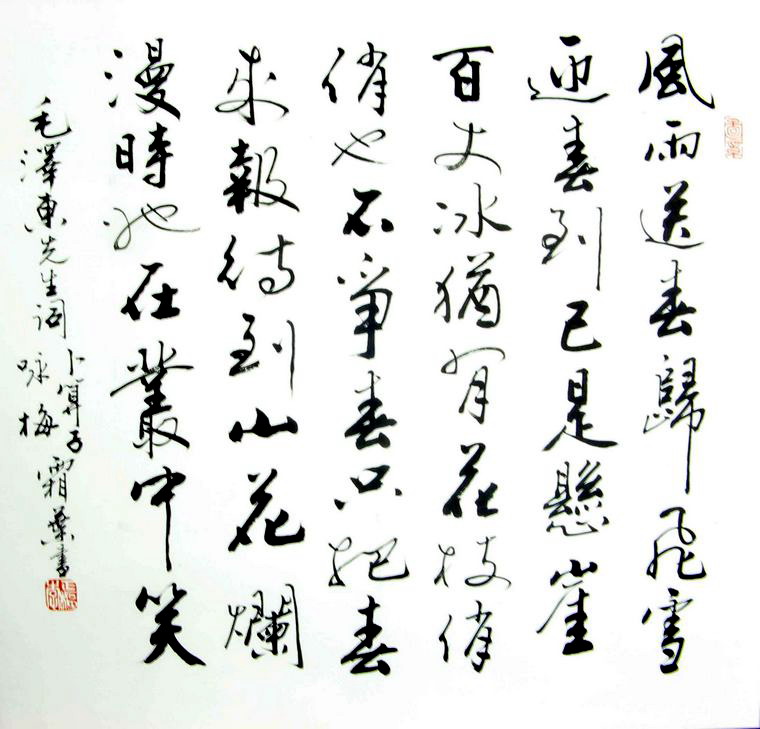 風雨送春歸飛雪
迎春到已是懸崖
百丈冰猶有花枝俏
俏也不爭春只把春
來報待到山花爛
漫時她在叢中笑
毛澤東先生詞
卜算子
咏梅
霜葉書